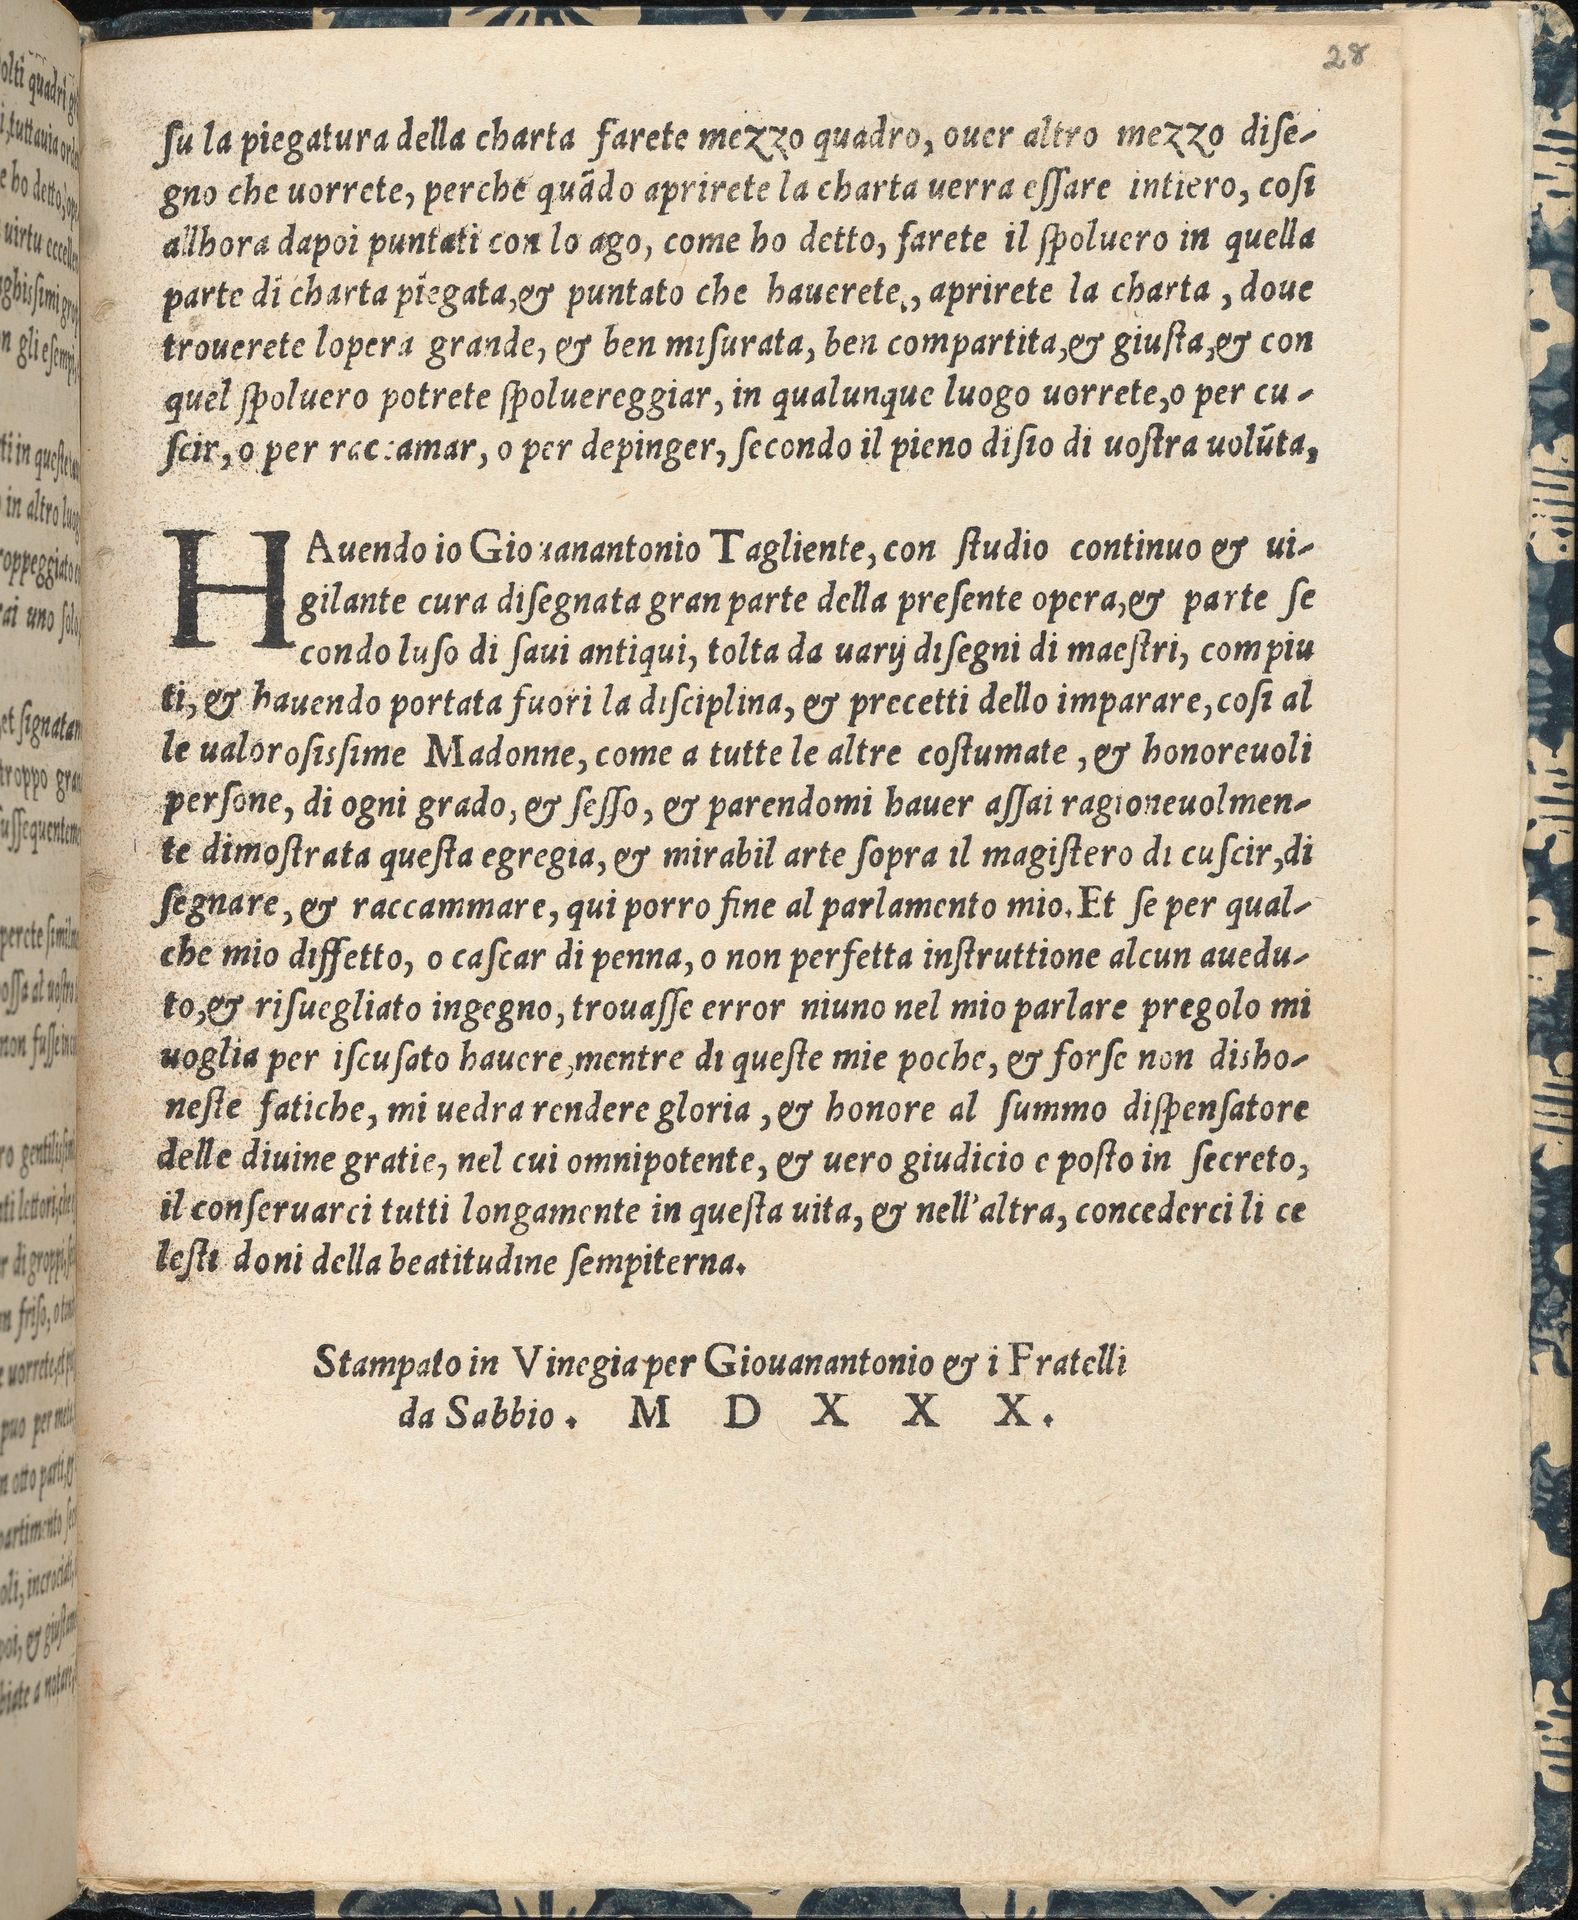 28
ſu la piegatura della charta farete mezzo quadro, ouer altro mezzo diſe-
gno che uorrete, perche quādo aprirete la charta uerra eſſare intiero, coſi
allhora dapoi puntati con lo ago, come ho detto, farete il ſpoluero in quella
parte di charta piegata,& puntato che hauerete, aprirete la charta, doue
trouerete lopera grande, & ben miſurata, ben compartita,& giuſta,& con
quel ſpoluero potrete ſpoluereggiar, in qualunque luogo uorrete,o per cu-
ſcir, o per raccamar, o per depinger, ſecondo il pieno diſio di uoſtra uolūta,
HAuendo io Giouanantonio Tagliente, con ſtudio continuo & ui-
gilante cura diſegnata gran parte della preſente opera,& parte ſe
condo luſo di ſaui antiqui, tolta da uarij diſegni di maeſtri, compiu
ti, & hauendo portata fuori la diſciplina, & precetti dello imparare, coſi al
le ualoroſisſime Madonne, come a tutte le altre coſtumate, & honoreuoli
perſone, di ogni grado, & ſeſſo, & parendomi hauer aſſai ragioneuolmen-
te dimoſtrata queſta egregia, & mirabil arte ſopra il magiſtero di cuſcir,di
ſegnare, & raccammare, qui porro fine al parlamento mio. Et ſe per qual-
che mio diffetto, o caſcar di penna, o non perfetta inſtruttione alcun auedu-
to,& riſuegliato ingegno, trouaſſe error niuno nel mio parlare pregolo mi
uoglia per iſcuſato hauere,mentre di queſte mie poche, & forſe non disho-
neſte fatiche, mi uedra rendere gloria, & honore al ſummo diſpenſatore
delle diuine gratie, nel cui omnipotente, & uero giudicio e poſto in ſecreto,
il conſeruarci tutti longamente in queſta uita, & nell'altra, concederci li ce
leſti doni della beatitudine ſempiterna.
Stampato in Vinegia per Giouanantonio & i Fratelli
da Sabbio. M D X X X.